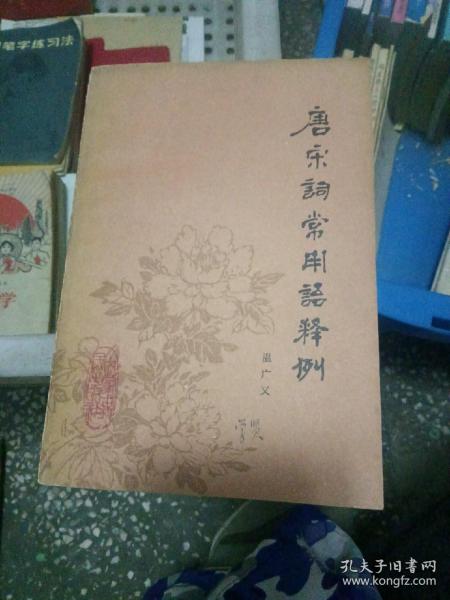 笔字练习法
唐宋詞常用語释例
温广义
学
孔夫子旧书网
www.kongfz.com